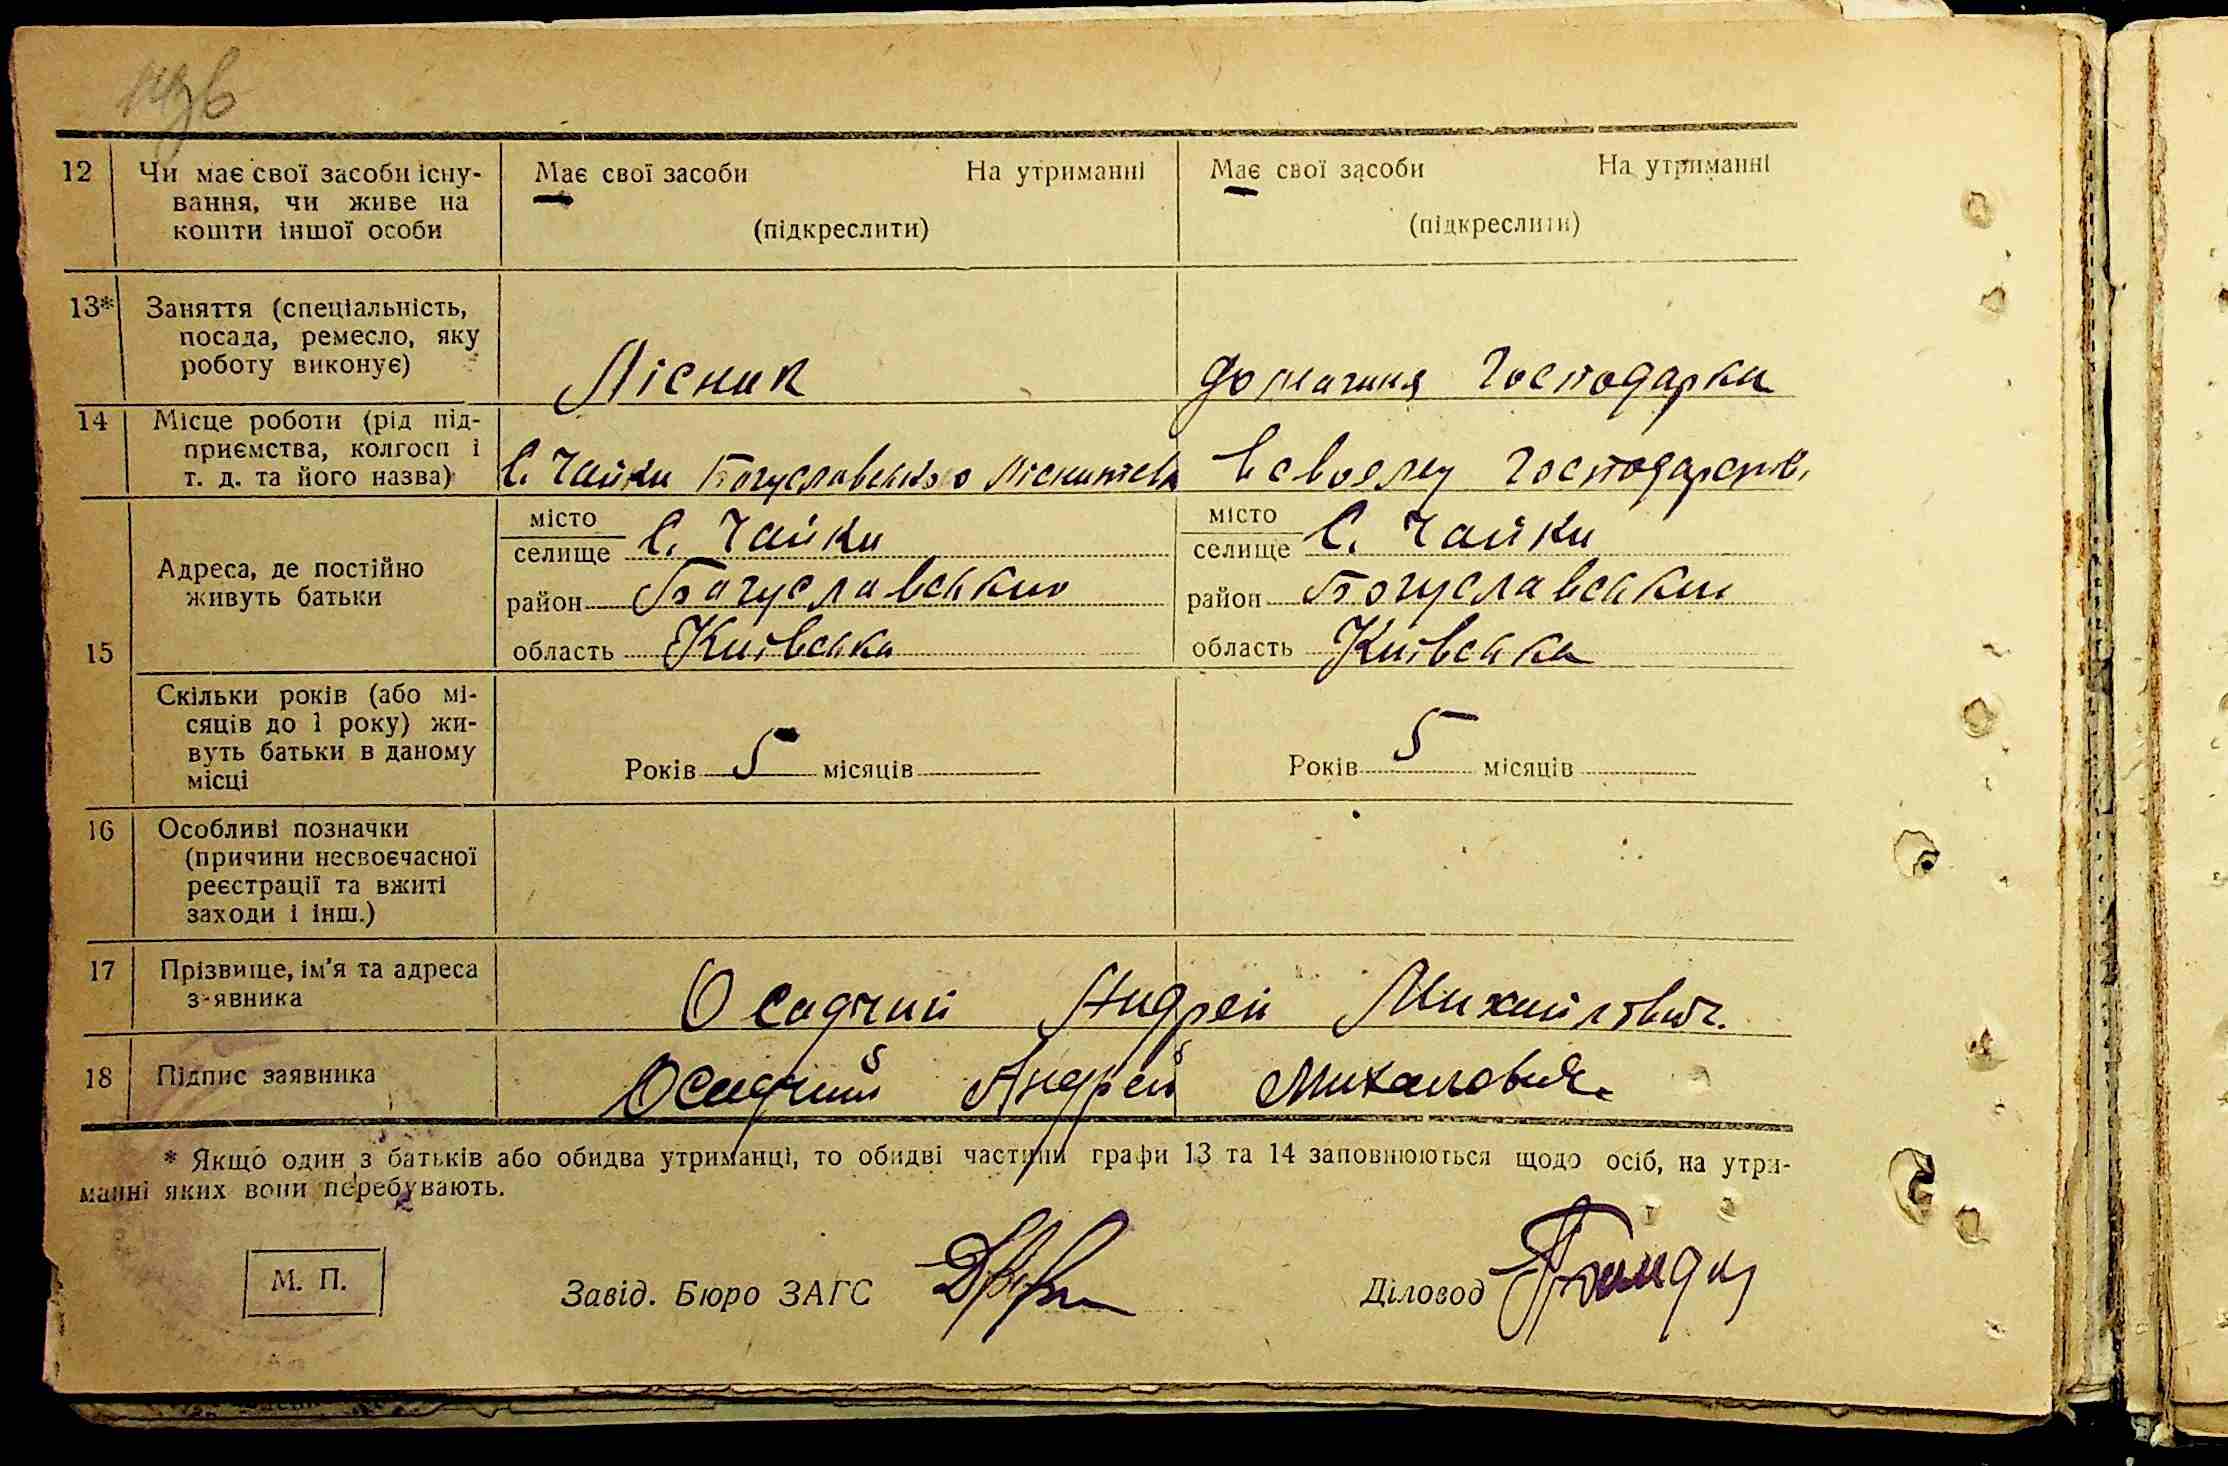 12 Чи має свої засоби існу- Має свої засоби На утриманні Має свої засоби На утриманні
вання, чи живе на
кошти іншої особи (підкреслити) (підкреслити)
13* Заняття (спеціальність,
посада, ремесло, яку
роботу виконує) Лісник домашня господарка
14 Місце роботи (рід під-
приємства, колгосп і
т. д. та його назва) С. Чайки Богуславського В своєму господарстві
місто місто
селище С. Чайки селище С. Чайки
Адреса, де постійно
живуть батьки район Богуславський район Богуславський
15 область Київська область Київська
Скільки років (або мі-
сяців до 1 року) жи-
вуть батьки в даному Років 5 місяців Років 5 місяців
місці
16 Особливі позначки
(причини несвоєчасної
реєстрації та вжиті
заходи і інш.)
17 Прізвище, ім'я та адреса Осадчий Андрей Михайлович.
з-явника
18 Підпис заявника Осадчий Андрей Михалович
* Якщо один з батьків або обидва утриманці, то обидві частини графи 13 та 14 заповнюються щодо осіб, на утри-
манні яких вони перебувають.
М. П. Завід. Бюро ЗАГС Діловод